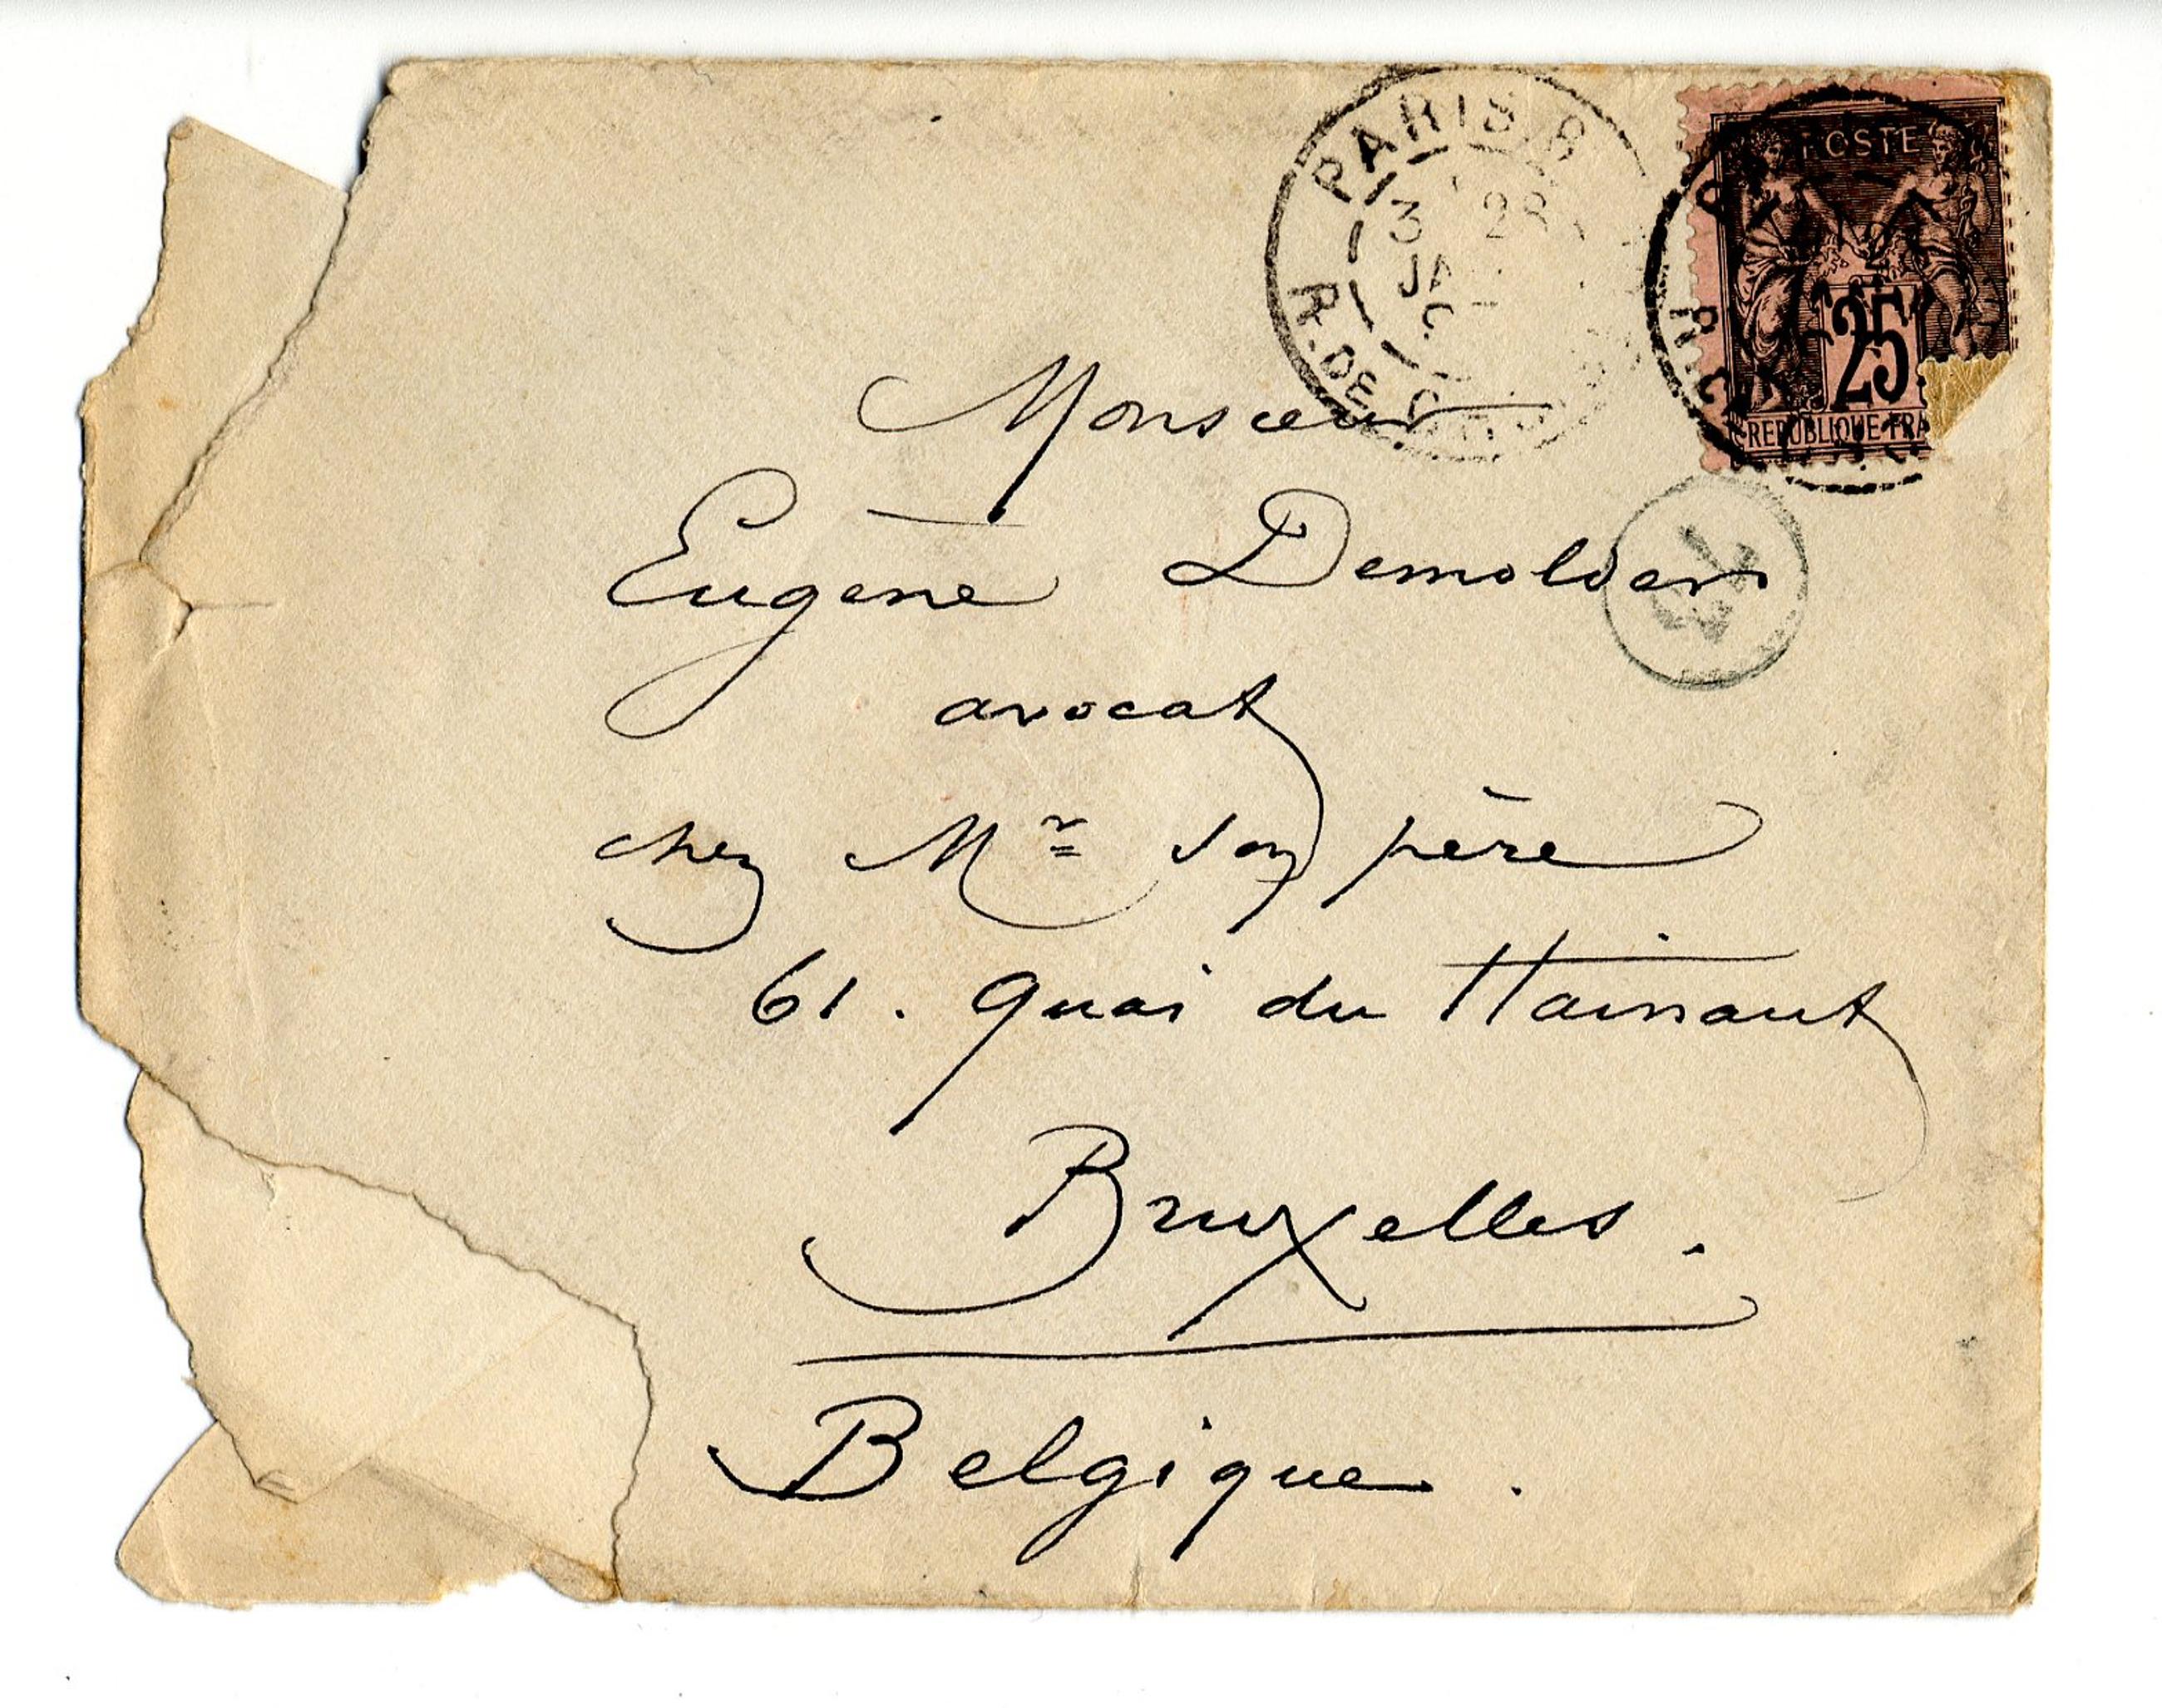 PARIS 8
3
28
R. DE
POSTE
25
REPUBLIQUE FRA
Monsieur
Eugène Demolder
avocat
chez Mr son père
61. Quai du Hainaut
Bruxelles.
Belgique.